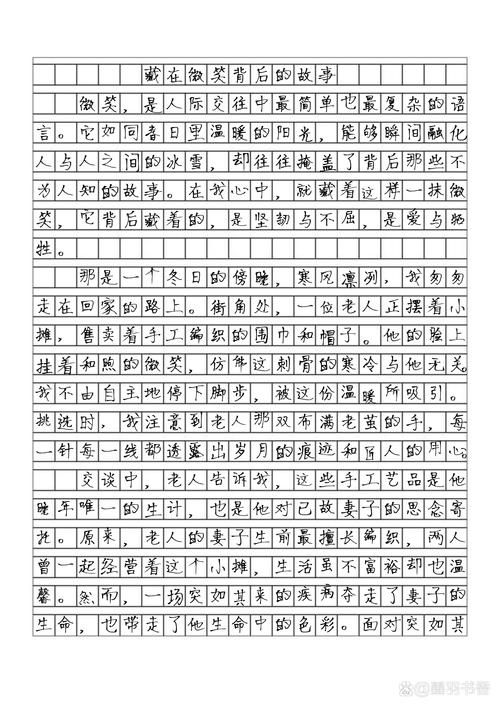 藏在微笑背后的故事
微笑，是人际交往中最简单也最复杂的语
言。它如同春日里温暖的阳光，能够瞬间融化
人与人之间的冰雪，却往往掩盖了背后那些不
为人知的故事。在我心中，就藏着这样一抹微
笑，它背后藏着的，是坚韧与不屈，是爱与牺
牲。
那是一个冬日的傍晚，寒风凛冽，我匆匆
走在回家的路上。街角处，一位老人正摆着小
摊，售卖着手工编织的围巾和帽子。他的脸上
挂着和煦的微笑，仿佛这刺骨的寒冷与他无关。
我不由自主地停下脚步，被这份温暖所吸引。
挑选时，我注意到老人那双布满老茧的手，每
一针每一线都透露出岁月的痕迹和匠人的用心。
交谈中，老人告诉我，这些手工艺品是他
晚年唯一的生计，也是他对已故妻子的思念寄
托。原来，老人的妻子生前最擅长编织，两人
曾一起经营着这个小摊，生活虽不富裕却也温
馨。然而，一场突如其来的疾病夺走了妻子的
生命，也带走了他生命中的色彩。面对突如其